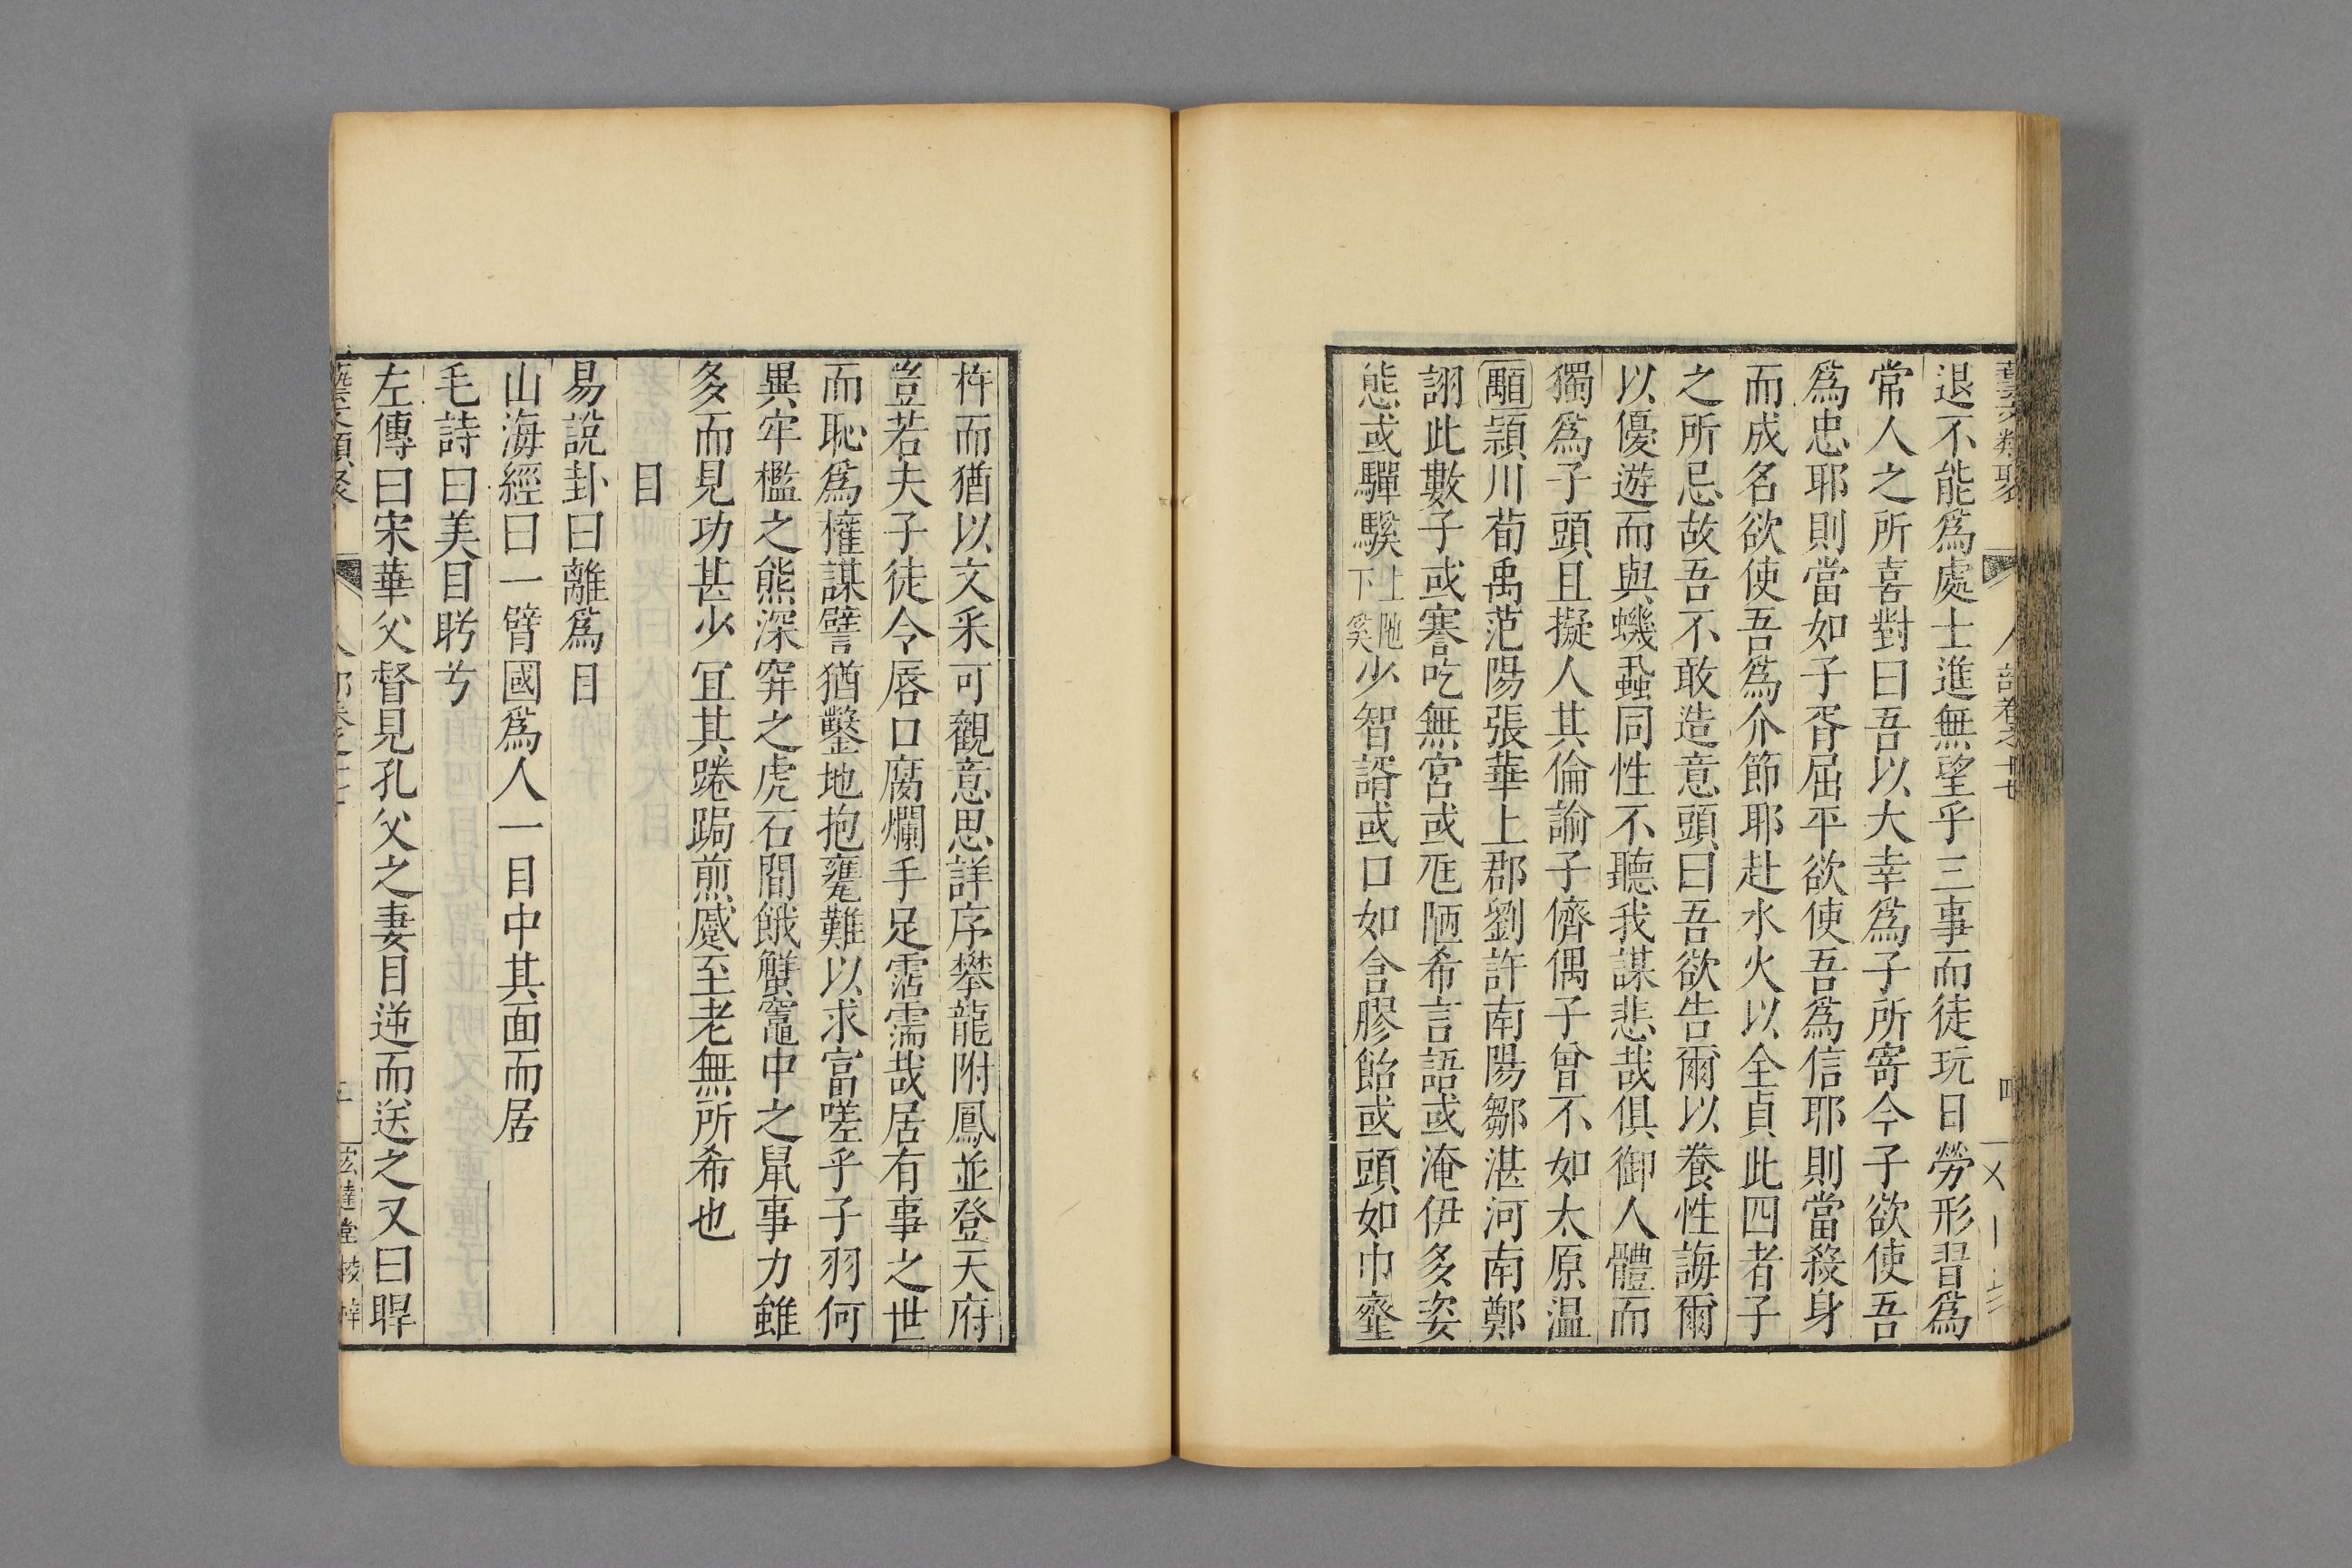 退不能爲處士進無望乎三事而徒玩日勞形習爲
常人之所喜對曰吾以大幸爲子所寄今子欲使吾
爲忠耶則當如子胥屈平欲使吾爲信耶則當殺身
而成名欲使吾爲介節耶赴水火以全貞此四者子
之所忌故吾不敢造意頭曰吾欲告爾以養性誨爾
以優遊而與蟣蝨同性不聽我謀悲哉俱御人體而
獨爲子頭且擬人其倫諭子儕偶子曾不如太原温
顒潁川荀禹范陽張華上郡劉許南陽鄒湛河南鄭
詡此數子或謇吃無宮或尫陋希言語或淹伊多姿
態或驒騱上馳下奚少智諝或口如含膠飴或頭如巾韲
杵而猶以文采可觀意思詳序攀龍附鳳並登天府
豈若夫子徒令唇口腐爛手足霑濡哉居有事之世
而恥爲權謀譬猶鑿地抱甕難以求富嗟乎子羽何
異牢檻之熊深穽之虎石間餓蟹竈中之鼠事力雖
多而見功甚少宜其踡跼煎蹙至老無所希也
目
易說卦曰離爲目
山海經曰一臂國爲人一目中其面而居
毛詩曰美目盻兮
左傳曰宋華父督見孔父之妻目逆而送之又曰睅